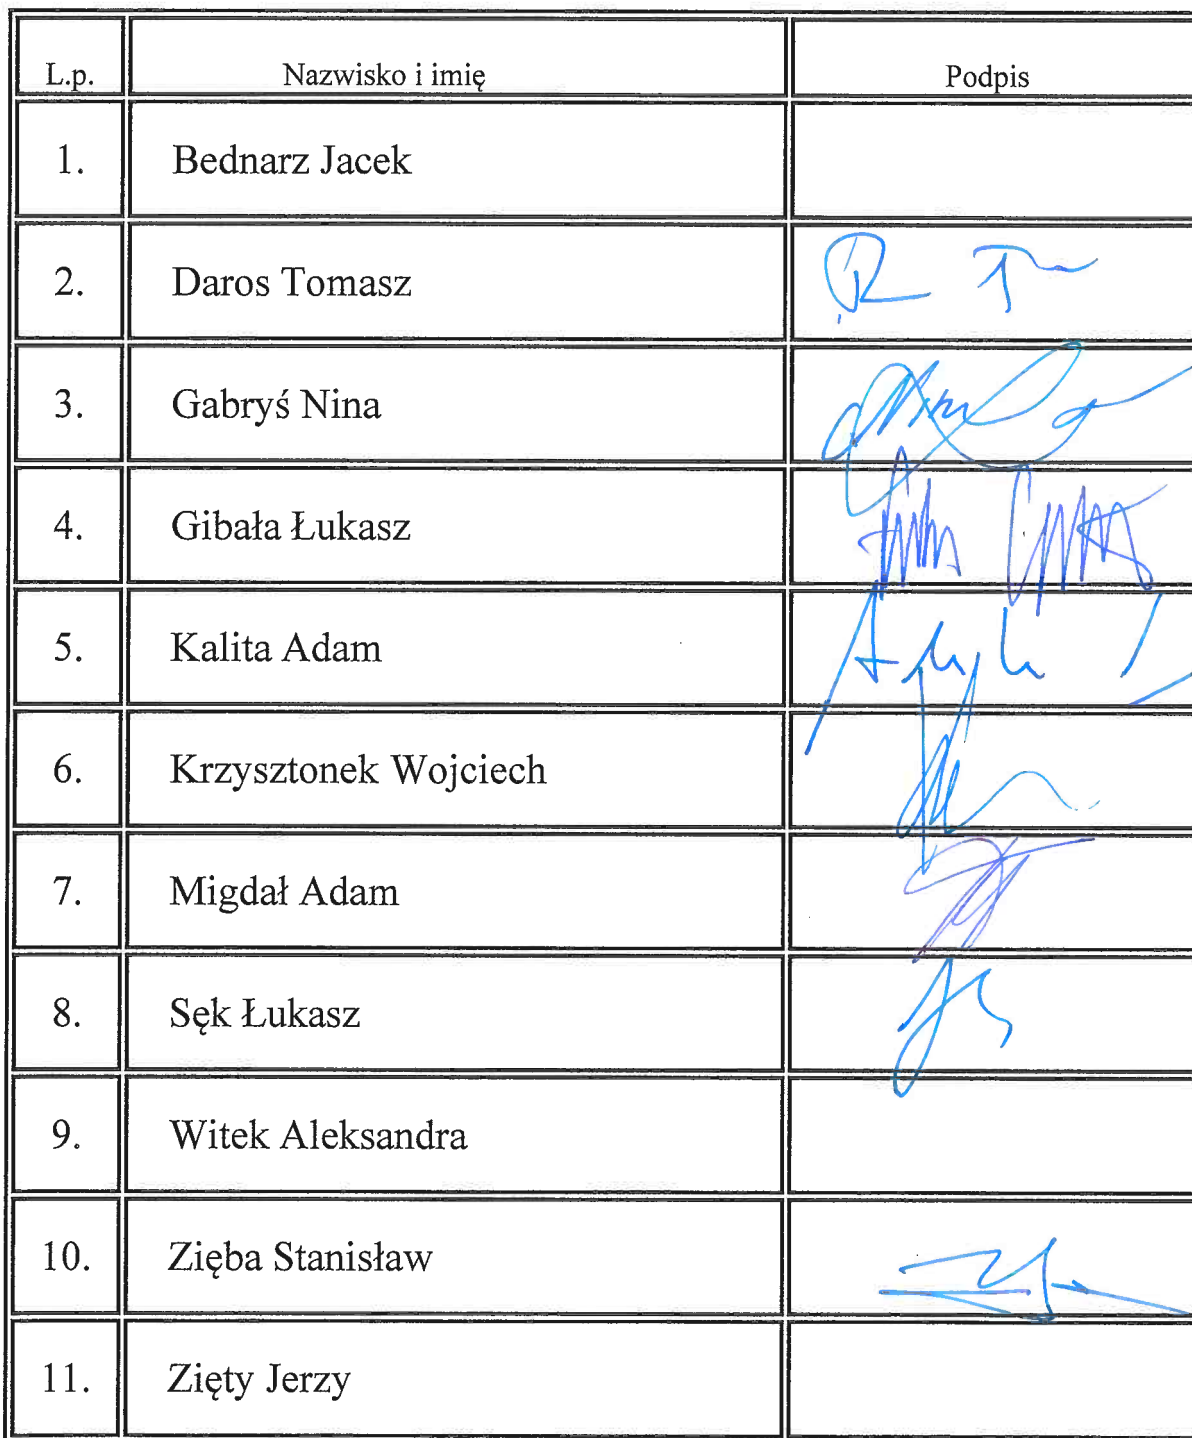 L.p. Nazwisko i imię Podpis
1. Bednarz Jacek
2. Daros Tomasz
3. Gabryś Nina
4. Gibała Łukasz
5. Kalita Adam
6. Krzysztonek Wojciech
7. Migdał Adam
8. Sęk Łukasz
9. Witek Aleksandra
10. Zięba Stanisław
11. Zięty Jerzy